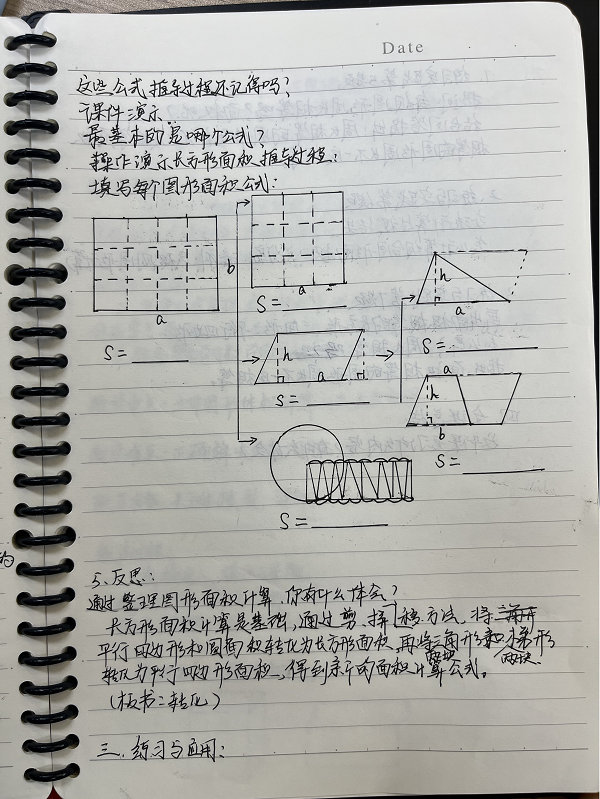 Date
这些公式推导过程还记得吗?
课件演示.
最基本的是哪个公式?
操作演示长方形面积推导过程:
填写每个图形面积公式:
b
a
a
S=
S=
h
a
S=
h
a
S=
h
b
a
S=
S=
5、反思:
通过整理图形面积计算,你有什么体会?
长方形面积计算是基础,通过剪、拼、移方法,将
平行四边形和圆面积转化为长方形面积,再将两块三角形和两块梯形
转化为平行四边形面积,得到新的面积计算公式。
(板书:转化)
三、练习与应用:
的